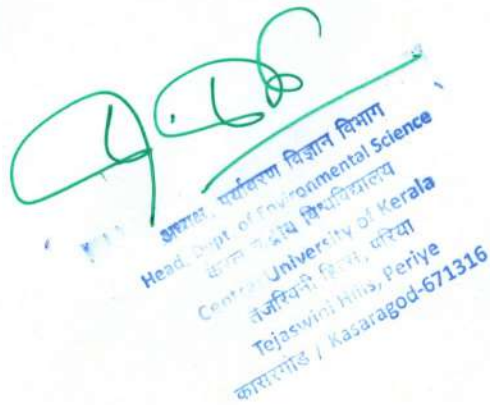 अध्यक्ष, पर्यावरण विज्ञान विभाग
Head, Dept. of Environmental Science
केरल केंद्रीय विश्वविद्यालय
Central University of Kerala
तेजस्विनी हिल्स, परिया
Tejaswini Hills, Periye
कासरगोड / Kasaragod-671316